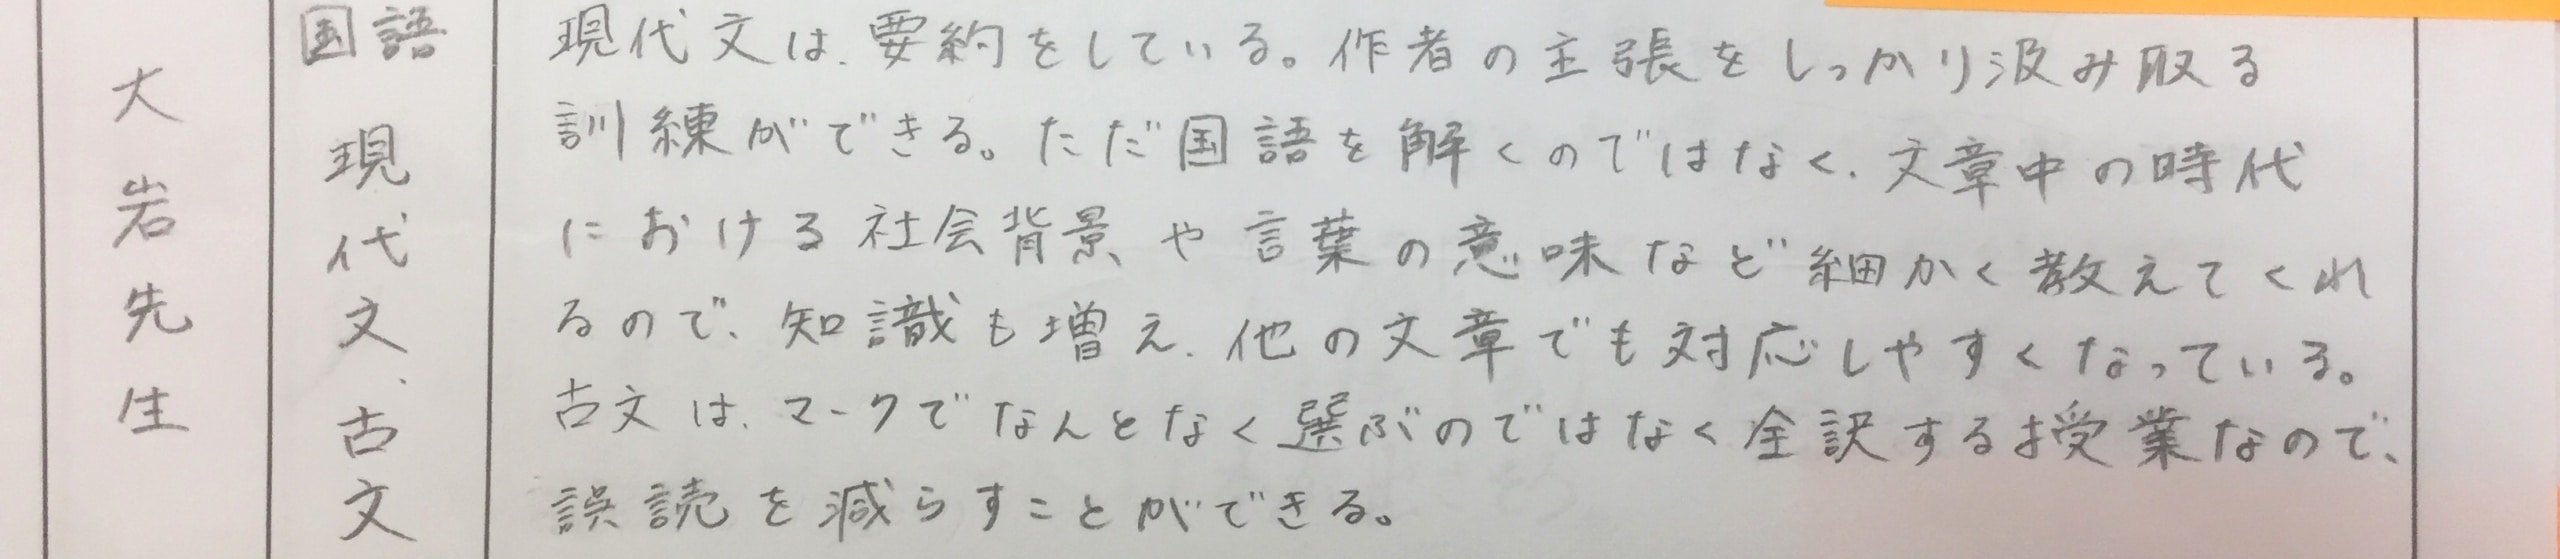 大岩先生
国語
現代文、古文
現代文は、要約をしている。作者の主張をしっかり汲み取る
訓練ができる。ただ国語を解くのではなく、文章中の時代
における社会背景や言葉の意味など細かく教えてくれ
るので、知識も増え、他の文章でも対応しやすくなっている。
古文は、マークでなんとなく選ぶのではなく全訳する授業なので、
誤読を減らすことができる。